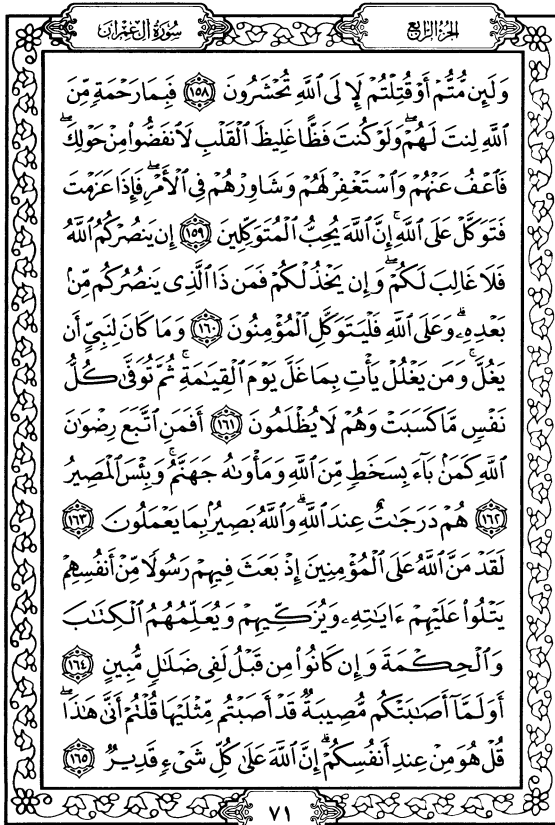 سُورَةُ آلِ عِمْرَانَ
الجُزءُ الرَّابِعُ
وَلَئِن مُّتُّمْ أَوْ قُتِلْتُمْ لَإِلَى ٱللَّهِ تُحْشَرُونَ ١٥٨ فَبِمَا رَحْمَةٍ مِّنَ
ٱللَّهِ لِنتَ لَهُمْ ۖ وَلَوْ كُنتَ فَظًّا غَلِيظَ ٱلْقَلْبِ لَٱنفَضُّوا۟ مِنْ حَوْلِكَ ۖ
فَٱعْفُ عَنْهُمْ وَٱسْتَغْفِرْ لَهُمْ وَشَاوِرْهُمْ فِى ٱلْأَمْرِ ۖ فَإِذَا عَزَمْتَ
فَتَوَكَّلْ عَلَى ٱللَّهِ ۚ إِنَّ ٱللَّهَ يُحِبُّ ٱلْمُتَوَكِّلِينَ ١٥٩ إِن يَنصُرْكُمُ ٱللَّهُ
فَلَا غَالِبَ لَكُمْ ۖ وَإِن يَخْذُلْكُمْ فَمَن ذَا ٱلَّذِى يَنصُرُكُم مِّنۢ
بَعْدِهِۦ ۗ وَعَلَى ٱللَّهِ فَلْيَتَوَكَّلِ ٱلْمُؤْمِنُونَ ١٦٠ وَمَا كَانَ لِنَبِىٍّ أَن
يَغُلَّ ۚ وَمَن يَغْلُلْ يَأْتِ بِمَا غَلَّ يَوْمَ ٱلْقِيَٰمَةِ ۚ ثُمَّ تُوَفَّىٰ كُلُّ
نَفْسٍ مَّا كَسَبَتْ وَهُمْ لَا يُظْلَمُونَ ١٦١ أَفَمَنِ ٱتَّبَعَ رِضْوَٰنَ
ٱللَّهِ كَمَنۢ بَآءَ بِسَخَطٍ مِّنَ ٱللَّهِ وَمَأْوَىٰهُ جَهَنَّمُ ۚ وَبِئْسَ ٱلْمَصِيرُ
١٦٢ هُمْ دَرَجَٰتٌ عِندَ ٱللَّهِ ۗ وَٱللَّهُ بَصِيرٌۢ بِمَا يَعْمَلُونَ ١٦٣
لَقَدْ مَنَّ ٱللَّهُ عَلَى ٱلْمُؤْمِنِينَ إِذْ بَعَثَ فِيهِمْ رَسُولًا مِّنْ أَنفُسِهِمْ
يَتْلُوا۟ عَلَيْهِمْ ءَايَٰتِهِۦ وَيُزَكِّيهِمْ وَيُعَلِّمُهُمُ ٱلْكِتَٰبَ
وَٱلْحِكْمَةَ وَإِن كَانُوا۟ مِن قَبْلُ لَفِى ضَلَٰلٍ مُّبِينٍ ١٦٤
أَوَلَمَّآ أَصَٰبَتْكُم مُّصِيبَةٌ قَدْ أَصَبْتُم مِّثْلَيْهَا قُلْتُمْ أَنَّىٰ هَٰذَا ۖ
قُلْ هُوَ مِنْ عِندِ أَنفُسِكُمْ ۗ إِنَّ ٱللَّهَ عَلَىٰ كُلِّ شَىْءٍ قَدِيرٌ ١٦٥
٧١